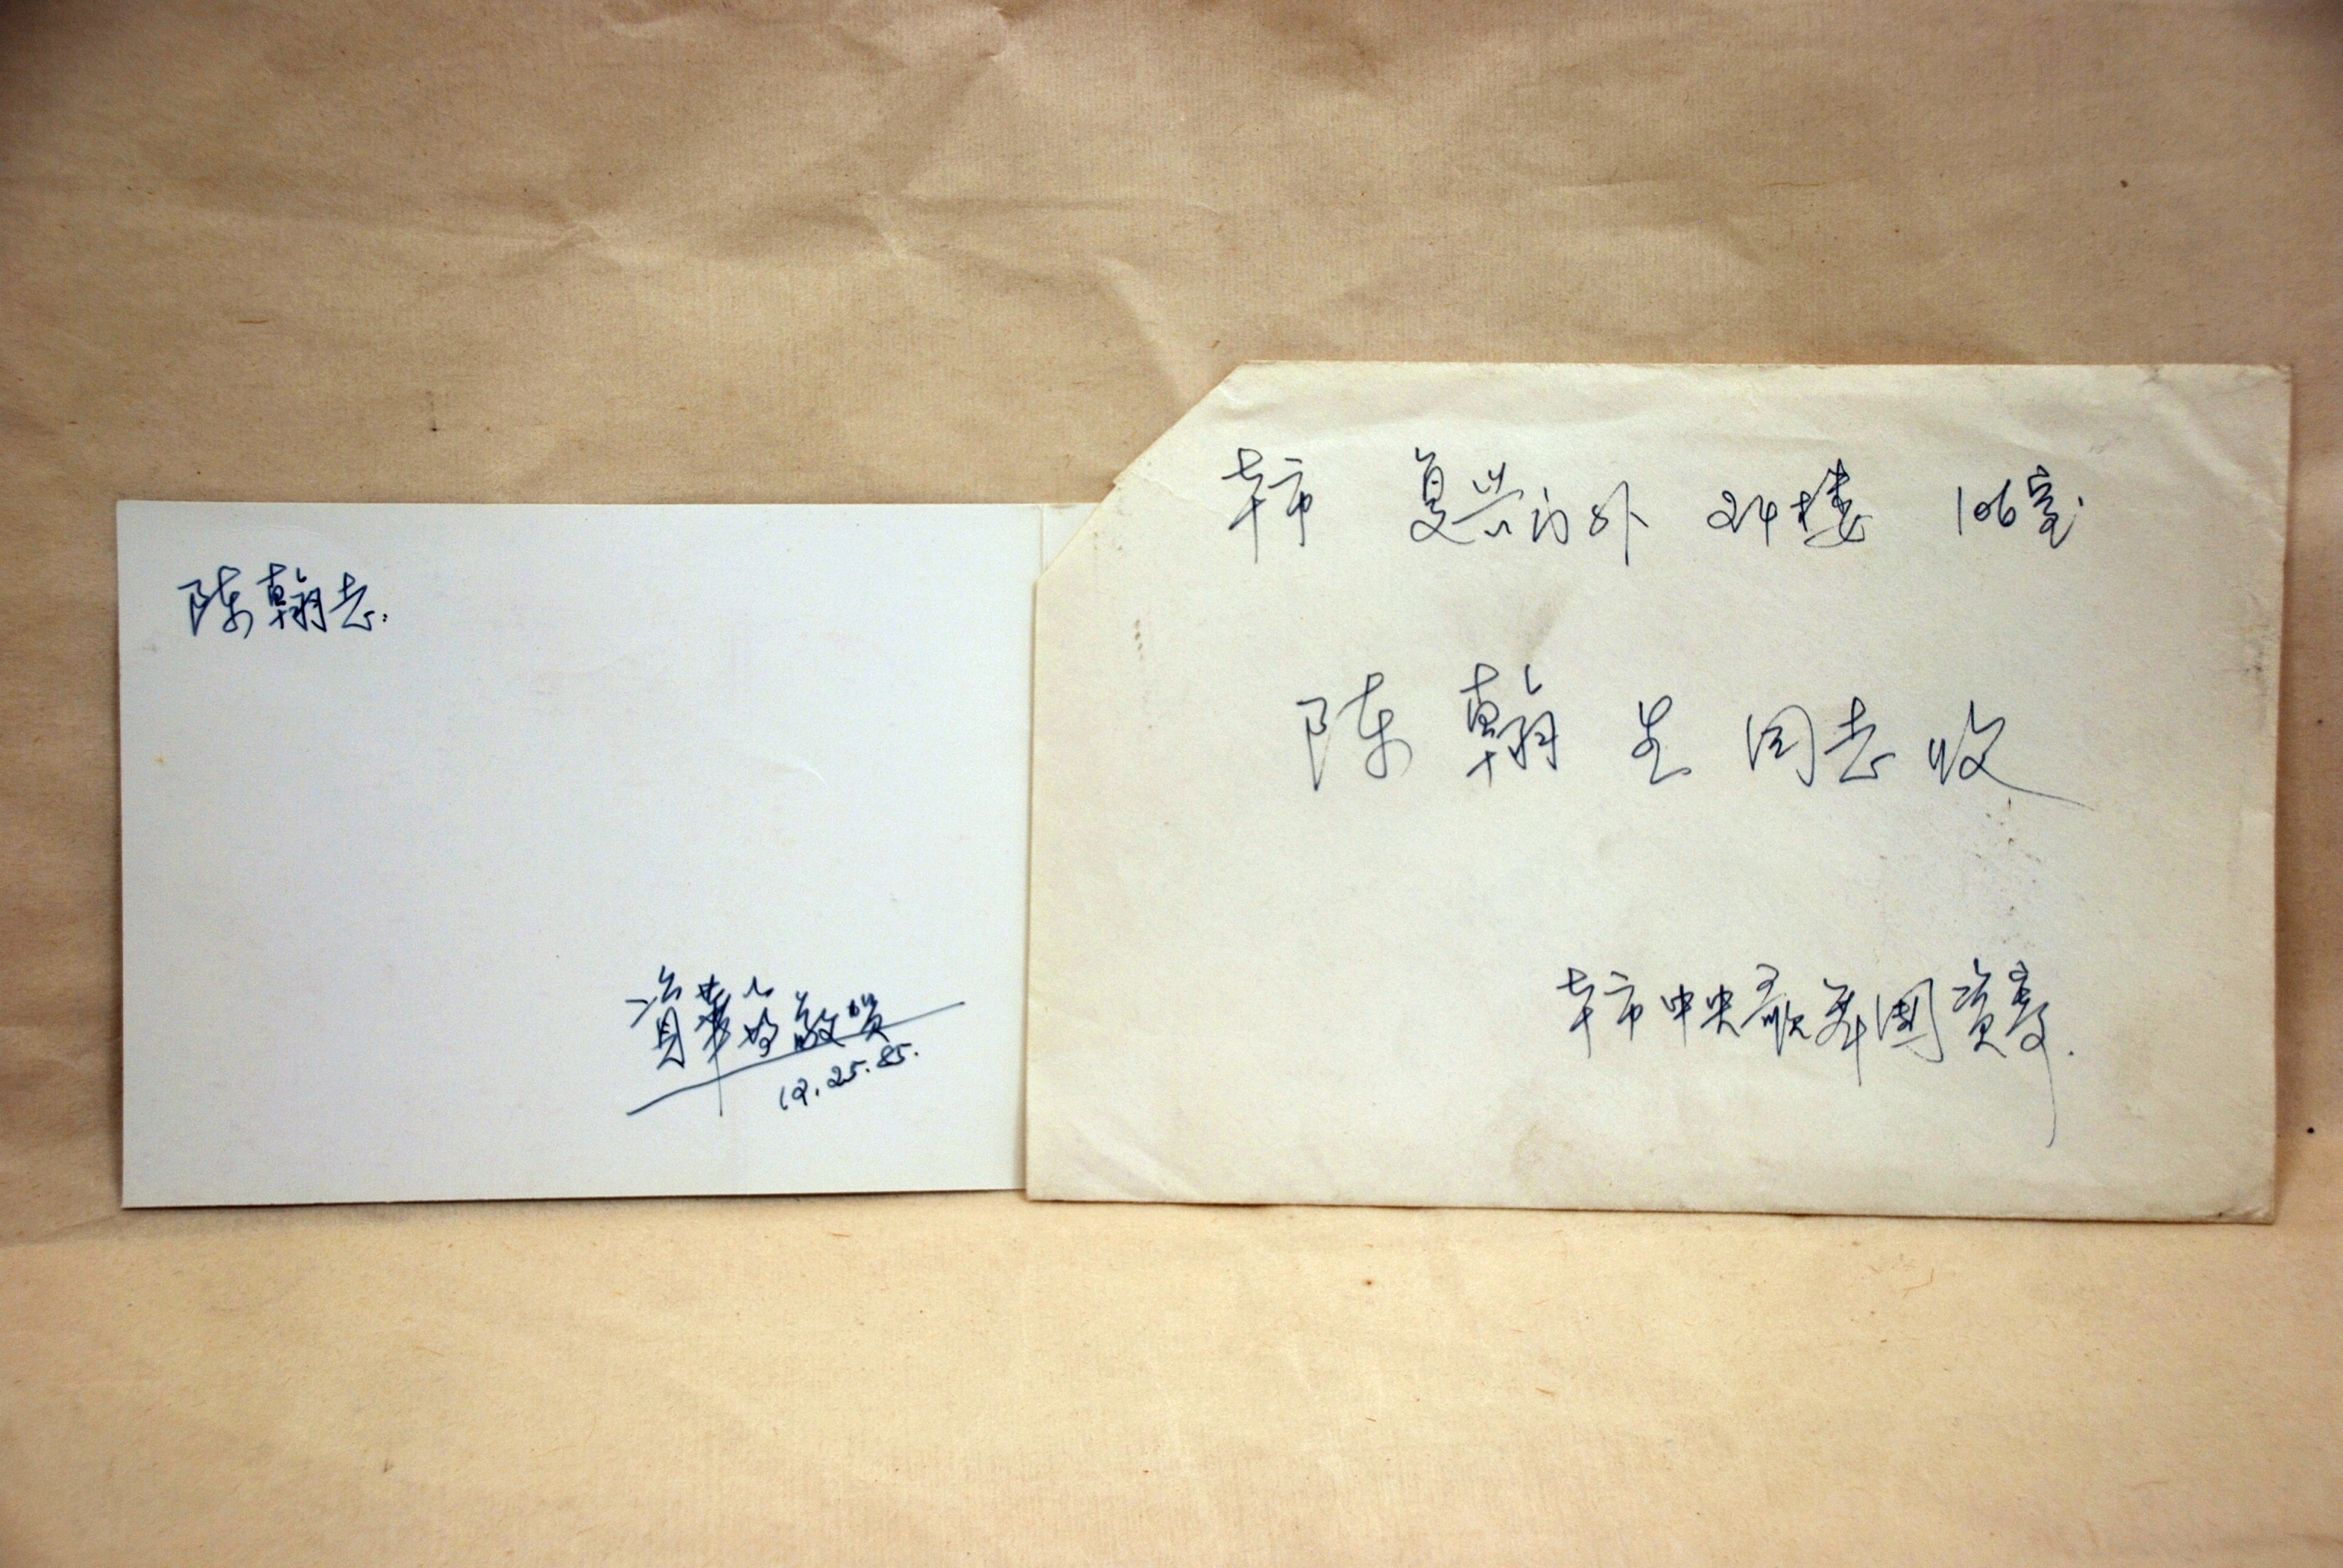 陈翰老:
資華筠敬贺
12.25.85.
本市 复兴门外 24楼 106室
陈翰笙同志收
本市中央歌舞團資寄.